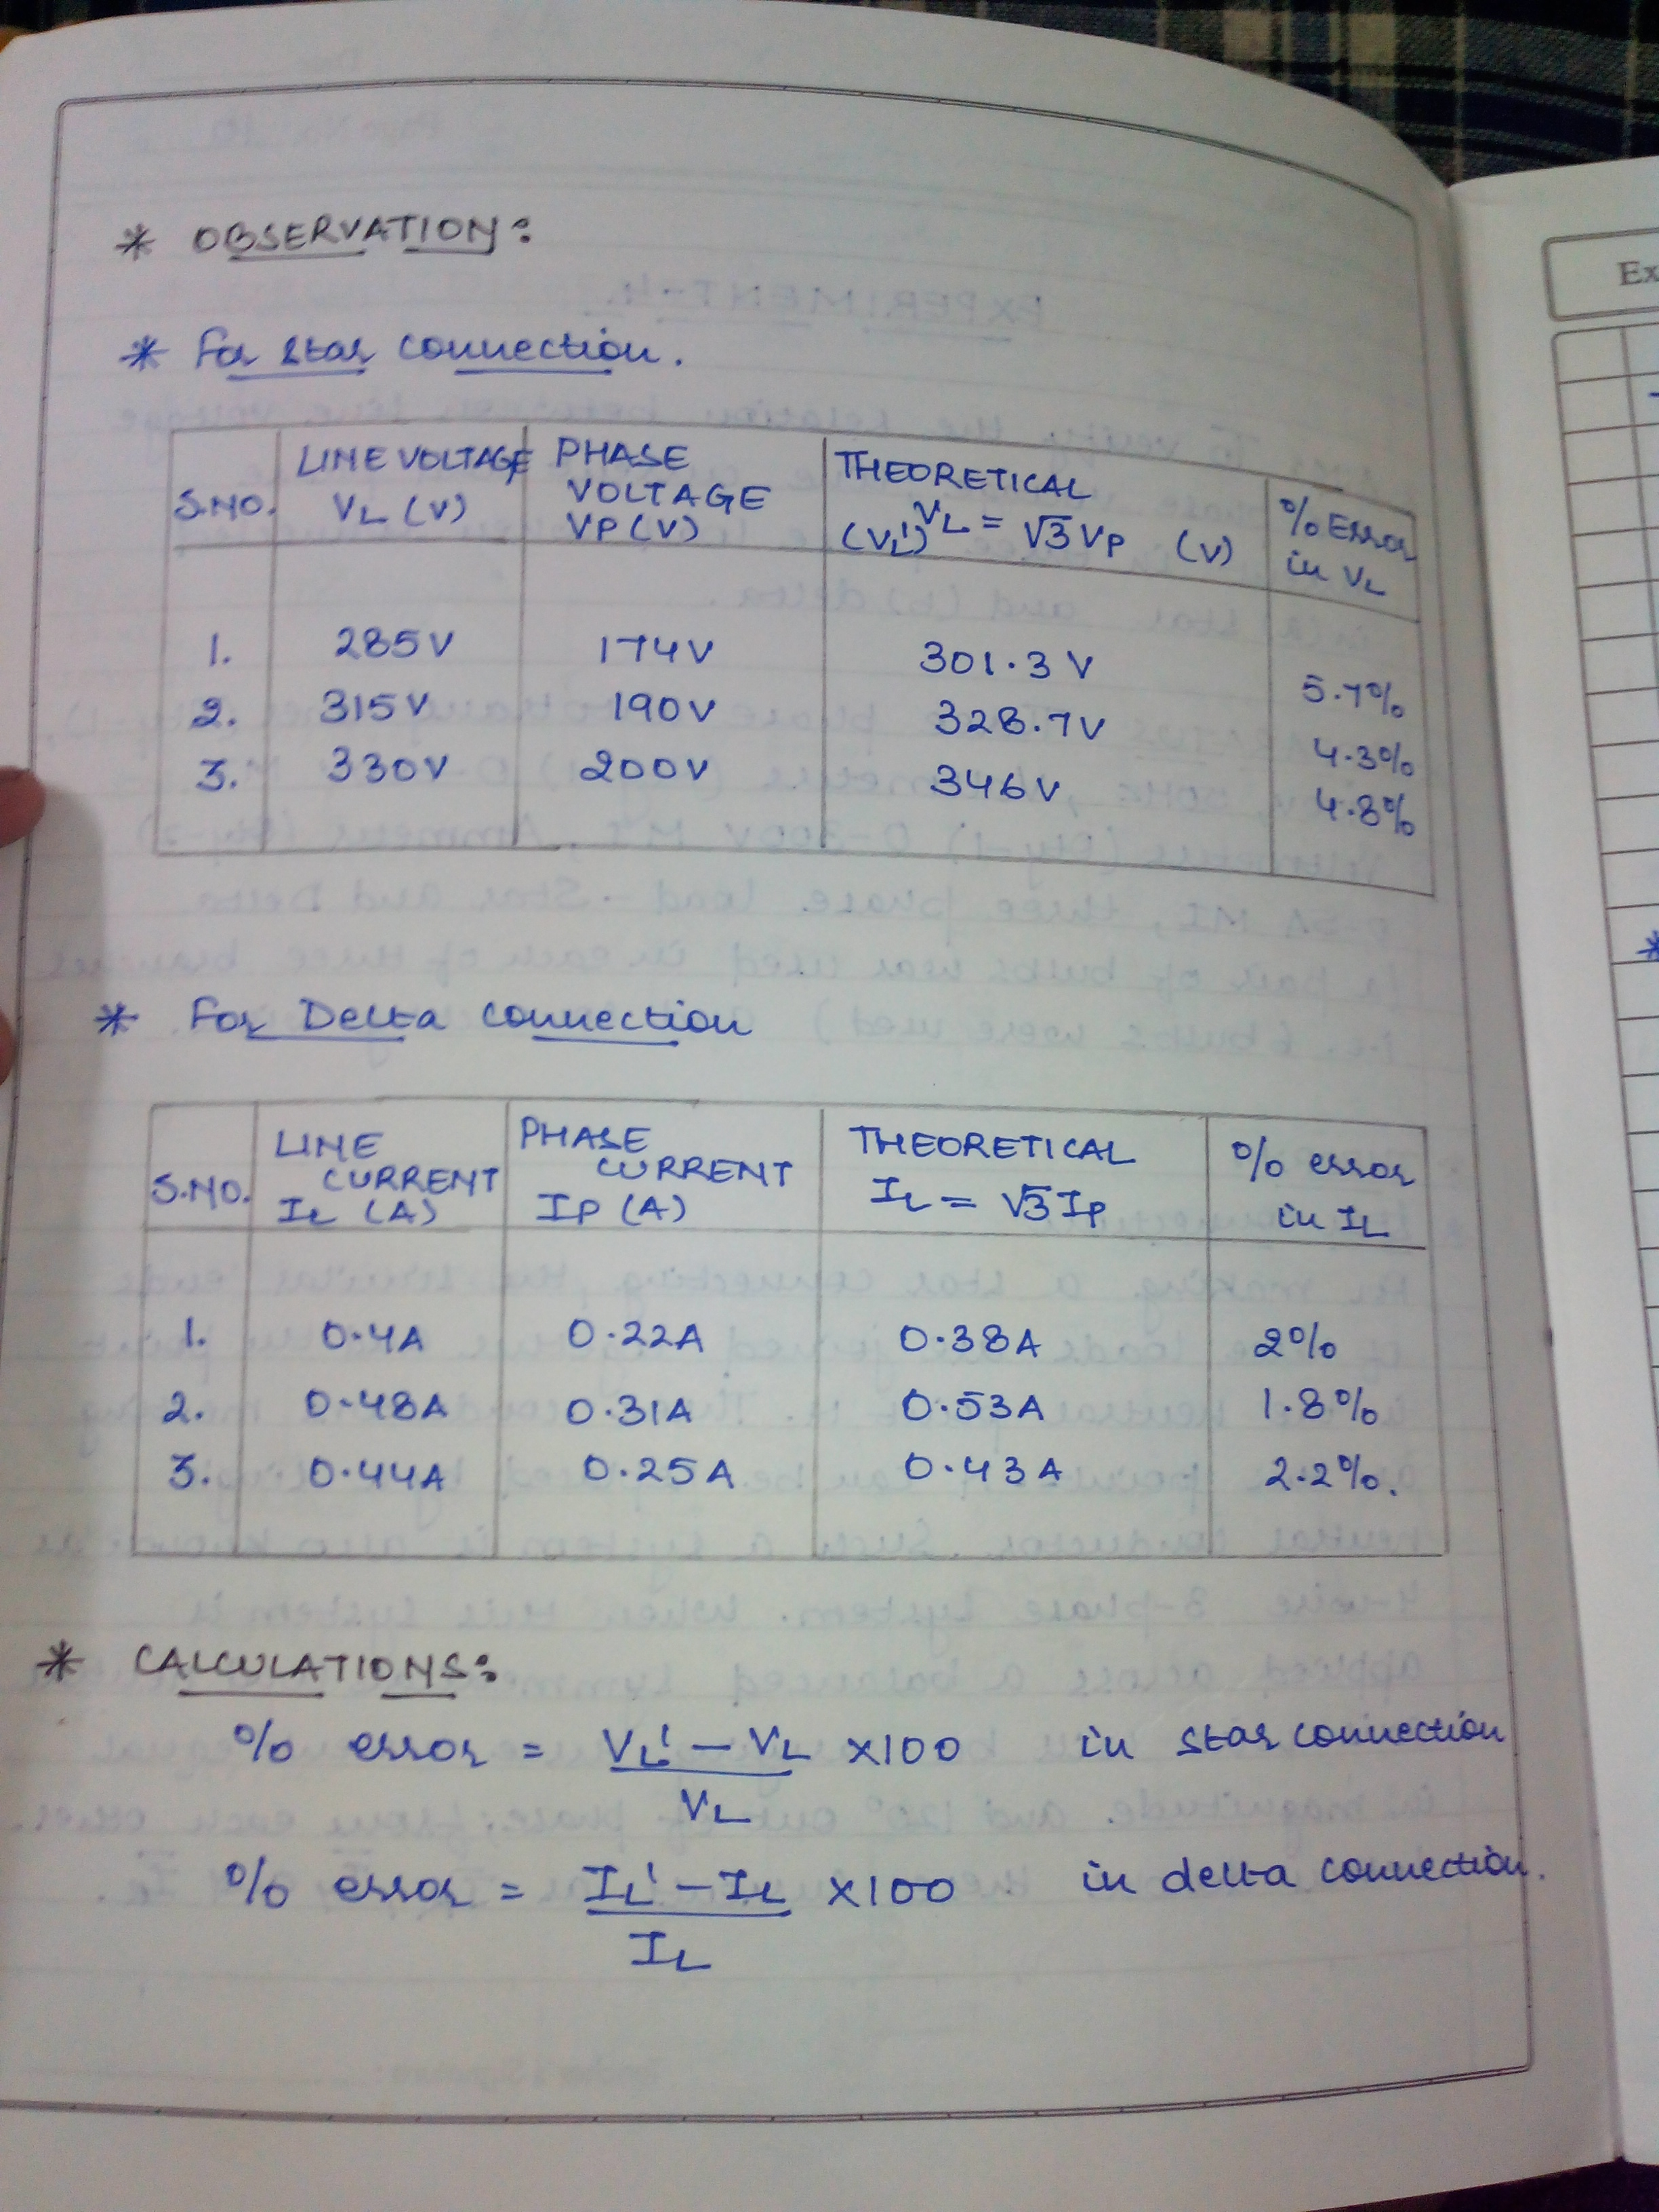 * OBSERVATION:
* For Star Connection.
S.NO. | LINE VOLTAGE VL (V) | PHASE VOLTAGE VP (V) | THEORETICAL (VL') VL = √3 VP (V) | % Error in VL
1. | 285V | 174V | 301.3 V | 5.7%
2. | 315V | 190V | 328.7V | 4.3%
3. | 330V | 200V | 346V | 4.8%
* For Delta Connection
S.NO. | LINE CURRENT IL (A) | PHASE CURRENT IP (A) | THEORETICAL IL = √3 IP | % error in IL
1. | 0.4A | 0.22A | 0.38A | 2%
2. | 0.48A | 0.31A | 0.53A | 1.8%
3. | 0.44A | 0.25A | 0.43A | 2.2%.
* CALCULATIONS:
% error = VL' - VL / VL ×100 in star connection
% error = IL' - IL / IL ×100 in delta connection.
Ex